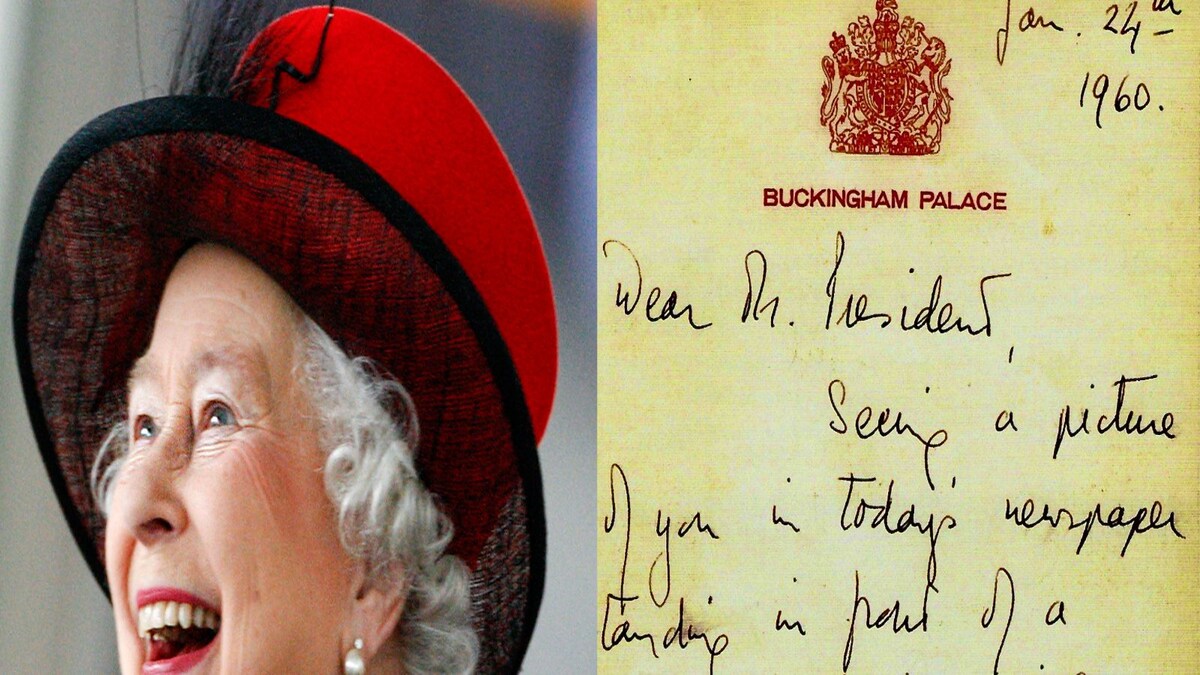 Jan. 24th
1960.
BUCKINGHAM PALACE
Dear Mr. President,
Seeing a picture
of you in today's newspaper
standing in front of a